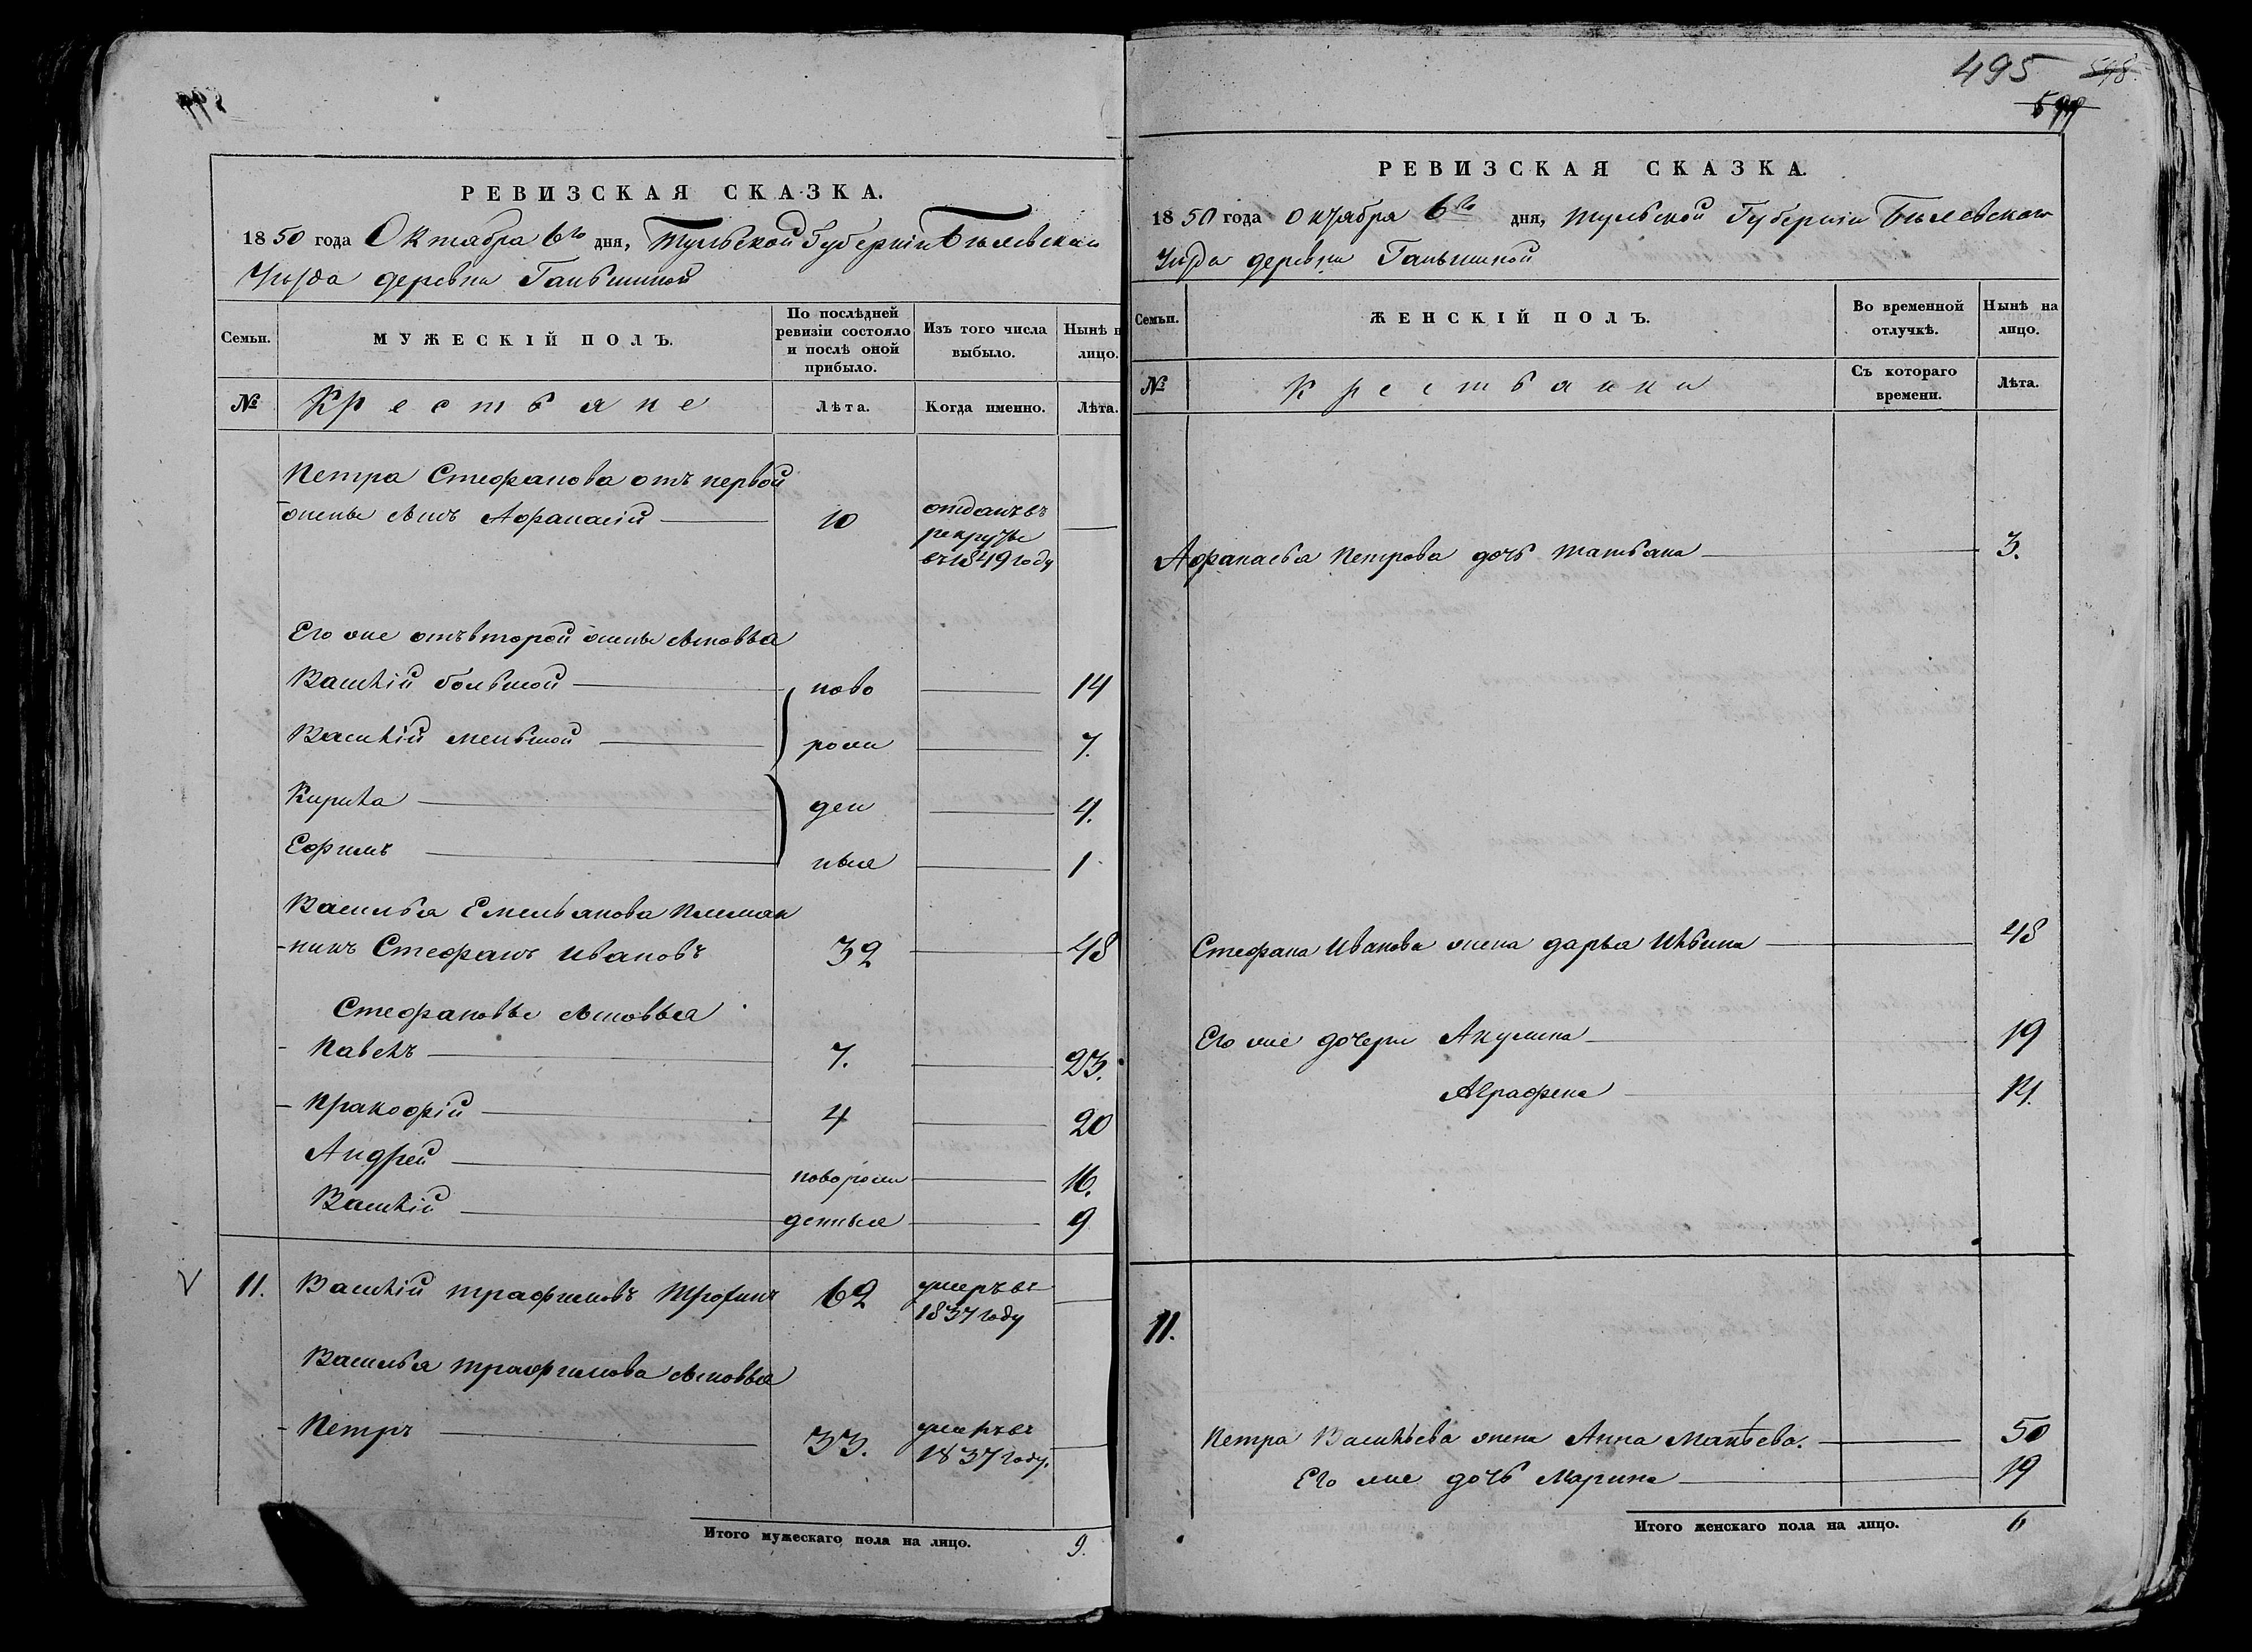 599
РЕВИЗСКАЯ СКАЗКА.
1850 года Октября 6го дня, Тульской Губерніи Бѣлевскаго
Уѣзда деревни Ганьшиной
Семьи.
МУЖЕСКІЙ ПОЛЪ.
По послѣдней
ревизіи состояло
и послѣ оной
прибыло.
Изъ того числа
выбыло.
Нынѣ н
лицо.
№
Крестьяне
Лѣта.
Когда именно.
Лѣта.
Петра Стефанова отъ первой
жены сынъ Афанасій 10 отданъ въ
рекруты
въ 1849 году
Его же отъ второй жены сыновья
Василій большой ново 14
Василій меньшой рож 7.
Кирила ден 4.
Ефимъ ныя 1
Василья Емельянова племян
никъ Стефанъ Ивановъ 32 48
Стефановы сыновья
Павелъ 7. 23.
Пракофій 4 20
Андрей новорож 16.
Василій денныя 9
11. Василій Трафимовъ 62 умеръ въ
1837 году
Василья Трафимова сыновья
Петръ 33. умеръ въ
1837 году.
Итого мужескаго пола на лицо. 9.
495 598.
599
РЕВИЗСКАЯ СКАЗКА.
1850 года Октября 6го дня, Тульской Губерніи Бѣлевскаго
Уѣзда деревни Ганьшиной
Семьи.
ЖЕНСКІЙ ПОЛЪ.
Во временной
отлучкѣ.
Нынѣ на
лицо.
№
Крестьянки
Съ котораго
времени.
Лѣта.
Афанасья Петрова дочь Татьяна 3.
Стефана Иванова жена Дарья Ильина 48
Его же дочери Акулина 19
Аграфена 14.
11.
Петра Васильева жена Анна 50
Его же дочь Марина 19
Итого женскаго пола на лицо. 6